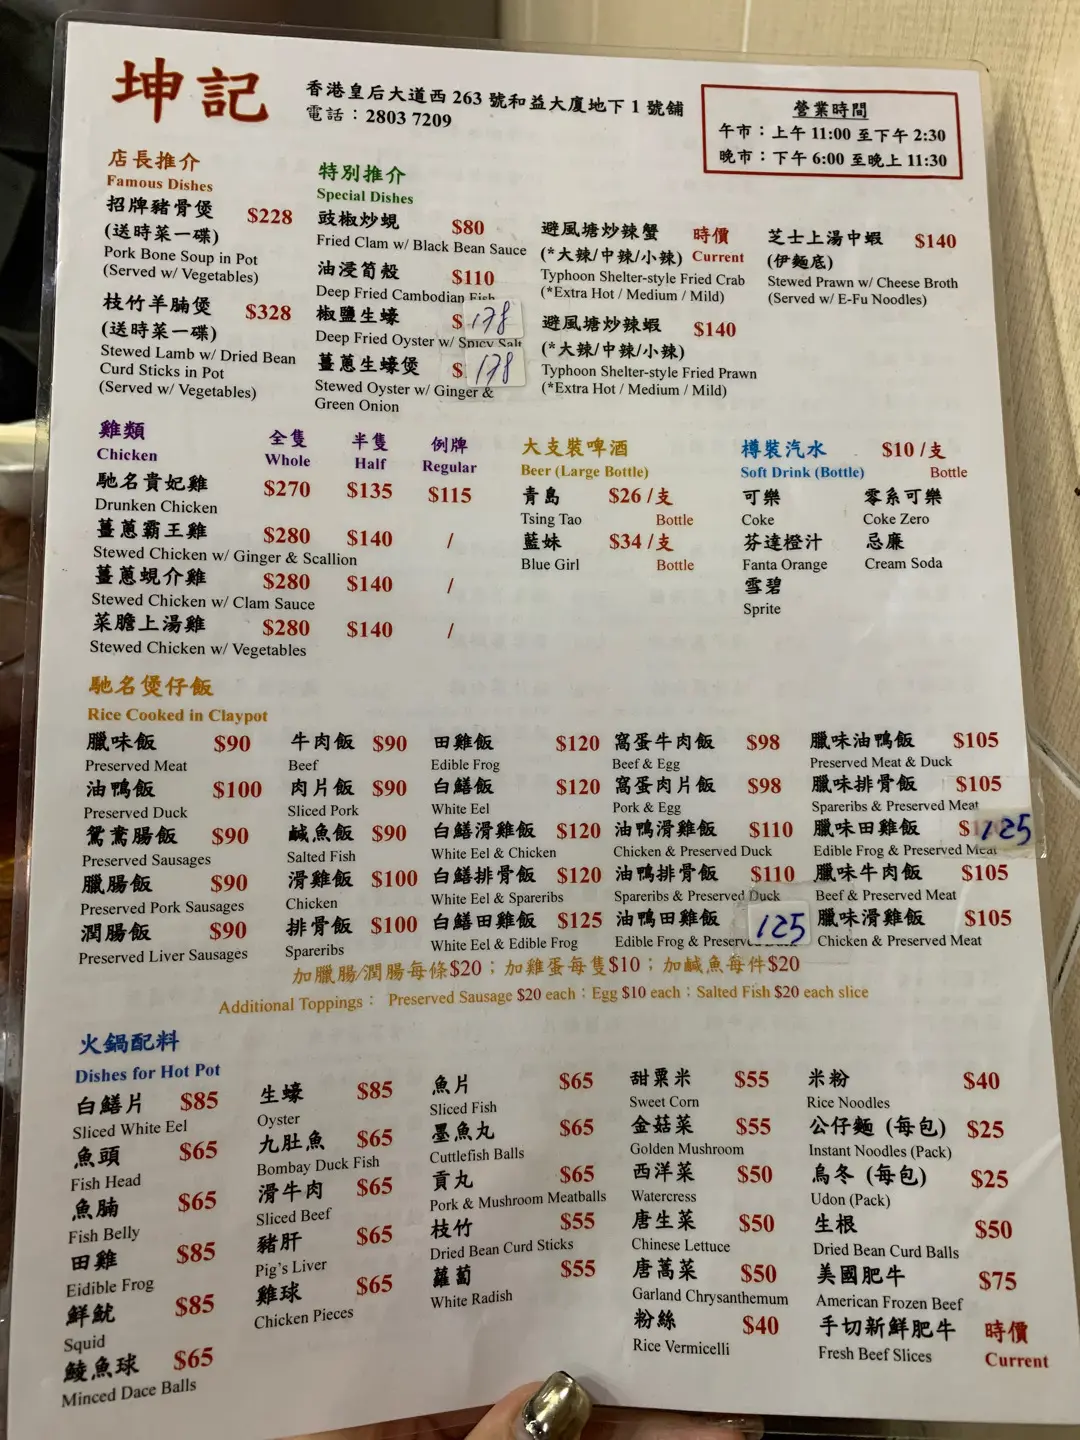 坤記
香港皇后大道西 263 號和益大廈地下 1 號舖
電話：2803 7209
營業時間
午市：上午 11:00 至下午 2:30
晚市：下午 6:00 至晚上 11:30
店長推介
Famous Dishes
招牌豬骨煲 $228
(送時菜一碟)
Pork Bone Soup in Pot
(Served w/ Vegetables)
枝竹羊腩煲 $328
(送時菜一碟)
Stewed Lamb w/ Dried Bean
Curd Sticks in Pot
(Served w/ Vegetables)
特別推介
Special Dishes
豉椒炒蜆 $80
Fried Clam w/ Black Bean Sauce
油浸筍殼 $110
Deep Fried Cambodian Fish
椒鹽生蠔 $178
Deep Fried Oyster w/ Spicy Salt
薑蔥生蠔煲 $178
Stewed Oyster w/ Ginger &
Green Onion
避風塘炒辣蟹 時價
(*大辣/中辣/小辣) Current
Typhoon Shelter-style Fried Crab
(*Extra Hot / Medium / Mild)
避風塘炒辣蝦 $140
(*大辣/中辣/小辣)
Typhoon Shelter-style Fried Prawn
(*Extra Hot / Medium / Mild)
芝士上湯中蝦 $140
(伊麵底)
Stewed Prawn w/ Cheese Broth
(Served w/ E-Fu Noodles)
雞類 全隻 半隻 例牌
Chicken Whole Half Regular
馳名貴妃雞 $270 $135 $115
Drunken Chicken
薑蔥霸王雞 $280 $140 /
Stewed Chicken w/ Ginger & Scallion
薑蔥蜆介雞 $280 $140 /
Stewed Chicken w/ Clam Sauce
菜膽上湯雞 $280 $140 /
Stewed Chicken w/ Vegetables
大支裝啤酒
Beer (Large Bottle)
青島 $26 /支
Tsing Tao Bottle
藍妹 $34 /支
Blue Girl Bottle
樽裝汽水 $10 /支
Soft Drink (Bottle) Bottle
可樂 零系可樂
Coke Coke Zero
芬達橙汁 忌廉
Fanta Orange Cream Soda
雪碧
Sprite
馳名煲仔飯
Rice Cooked in Claypot
臘味飯 $90 牛肉飯 $90 田雞飯 $120 窩蛋牛肉飯 $98 臘味油鴨飯 $105
Preserved Meat Beef Edible Frog Beef & Egg Preserved Meat & Duck
油鴨飯 $100 肉片飯 $90 白鱔飯 $120 窩蛋肉片飯 $98 臘味排骨飯 $105
Preserved Duck Sliced Pork White Eel Pork & Egg Spareribs & Preserved Meat
鴛鴦腸飯 $90 鹹魚飯 $90 白鱔滑雞飯 $120 油鴨滑雞飯 $110 臘味田雞飯 $125
Preserved Sausages Salted Fish White Eel & Chicken Chicken & Preserved Duck Edible Frog & Preserved Meat
臘腸飯 $90 滑雞飯 $100 白鱔排骨飯 $120 油鴨排骨飯 $110 臘味牛肉飯 $105
Preserved Pork Sausages Chicken White Eel & Spareribs Spareribs & Preserved Duck Beef & Preserved Meat
潤腸飯 $90 排骨飯 $100 白鱔田雞飯 $125 油鴨田雞飯 125 臘味滑雞飯 $105
Preserved Liver Sausages Spareribs White Eel & Edible Frog Edible Frog & Preserved Chicken & Preserved Meat
加臘腸/潤腸每條$20；加雞蛋每隻$10；加鹹魚每件$20
Additional Toppings： Preserved Sausage $20 each；Egg $10 each；Salted Fish $20 each slice
火鍋配料
Dishes for Hot Pot
白鱔片 $85
Sliced White Eel
魚頭 $65
Fish Head
魚腩 $65
Fish Belly
田雞 $85
Eidible Frog
鮮魷 $85
Squid
鯪魚球 $65
Minced Dace Balls
生蠔 $85
Oyster
九肚魚 $65
Bombay Duck Fish
滑牛肉 $65
Sliced Beef
豬肝 $65
Pig's Liver
雞球 $65
Chicken Pieces
魚片 $65
Sliced Fish
墨魚丸 $65
Cuttlefish Balls
貢丸 $65
Pork & Mushroom Meatballs
枝竹 $55
Dried Bean Curd Sticks
蘿蔔 $55
White Radish
甜粟米 $55
Sweet Corn
金菇菜 $55
Golden Mushroom
西洋菜 $50
Watercress
唐生菜 $50
Chinese Lettuce
唐蒿菜 $50
Garland Chrysanthemum
粉絲 $40
Rice Vermicelli
米粉 $40
Rice Noodles
公仔麵 (每包) $25
Instant Noodles (Pack)
烏冬 (每包) $25
Udon (Pack)
生根 $50
Dried Bean Curd Balls
美國肥牛 $75
American Frozen Beef
手切新鮮肥牛 時價
Fresh Beef Slices Current